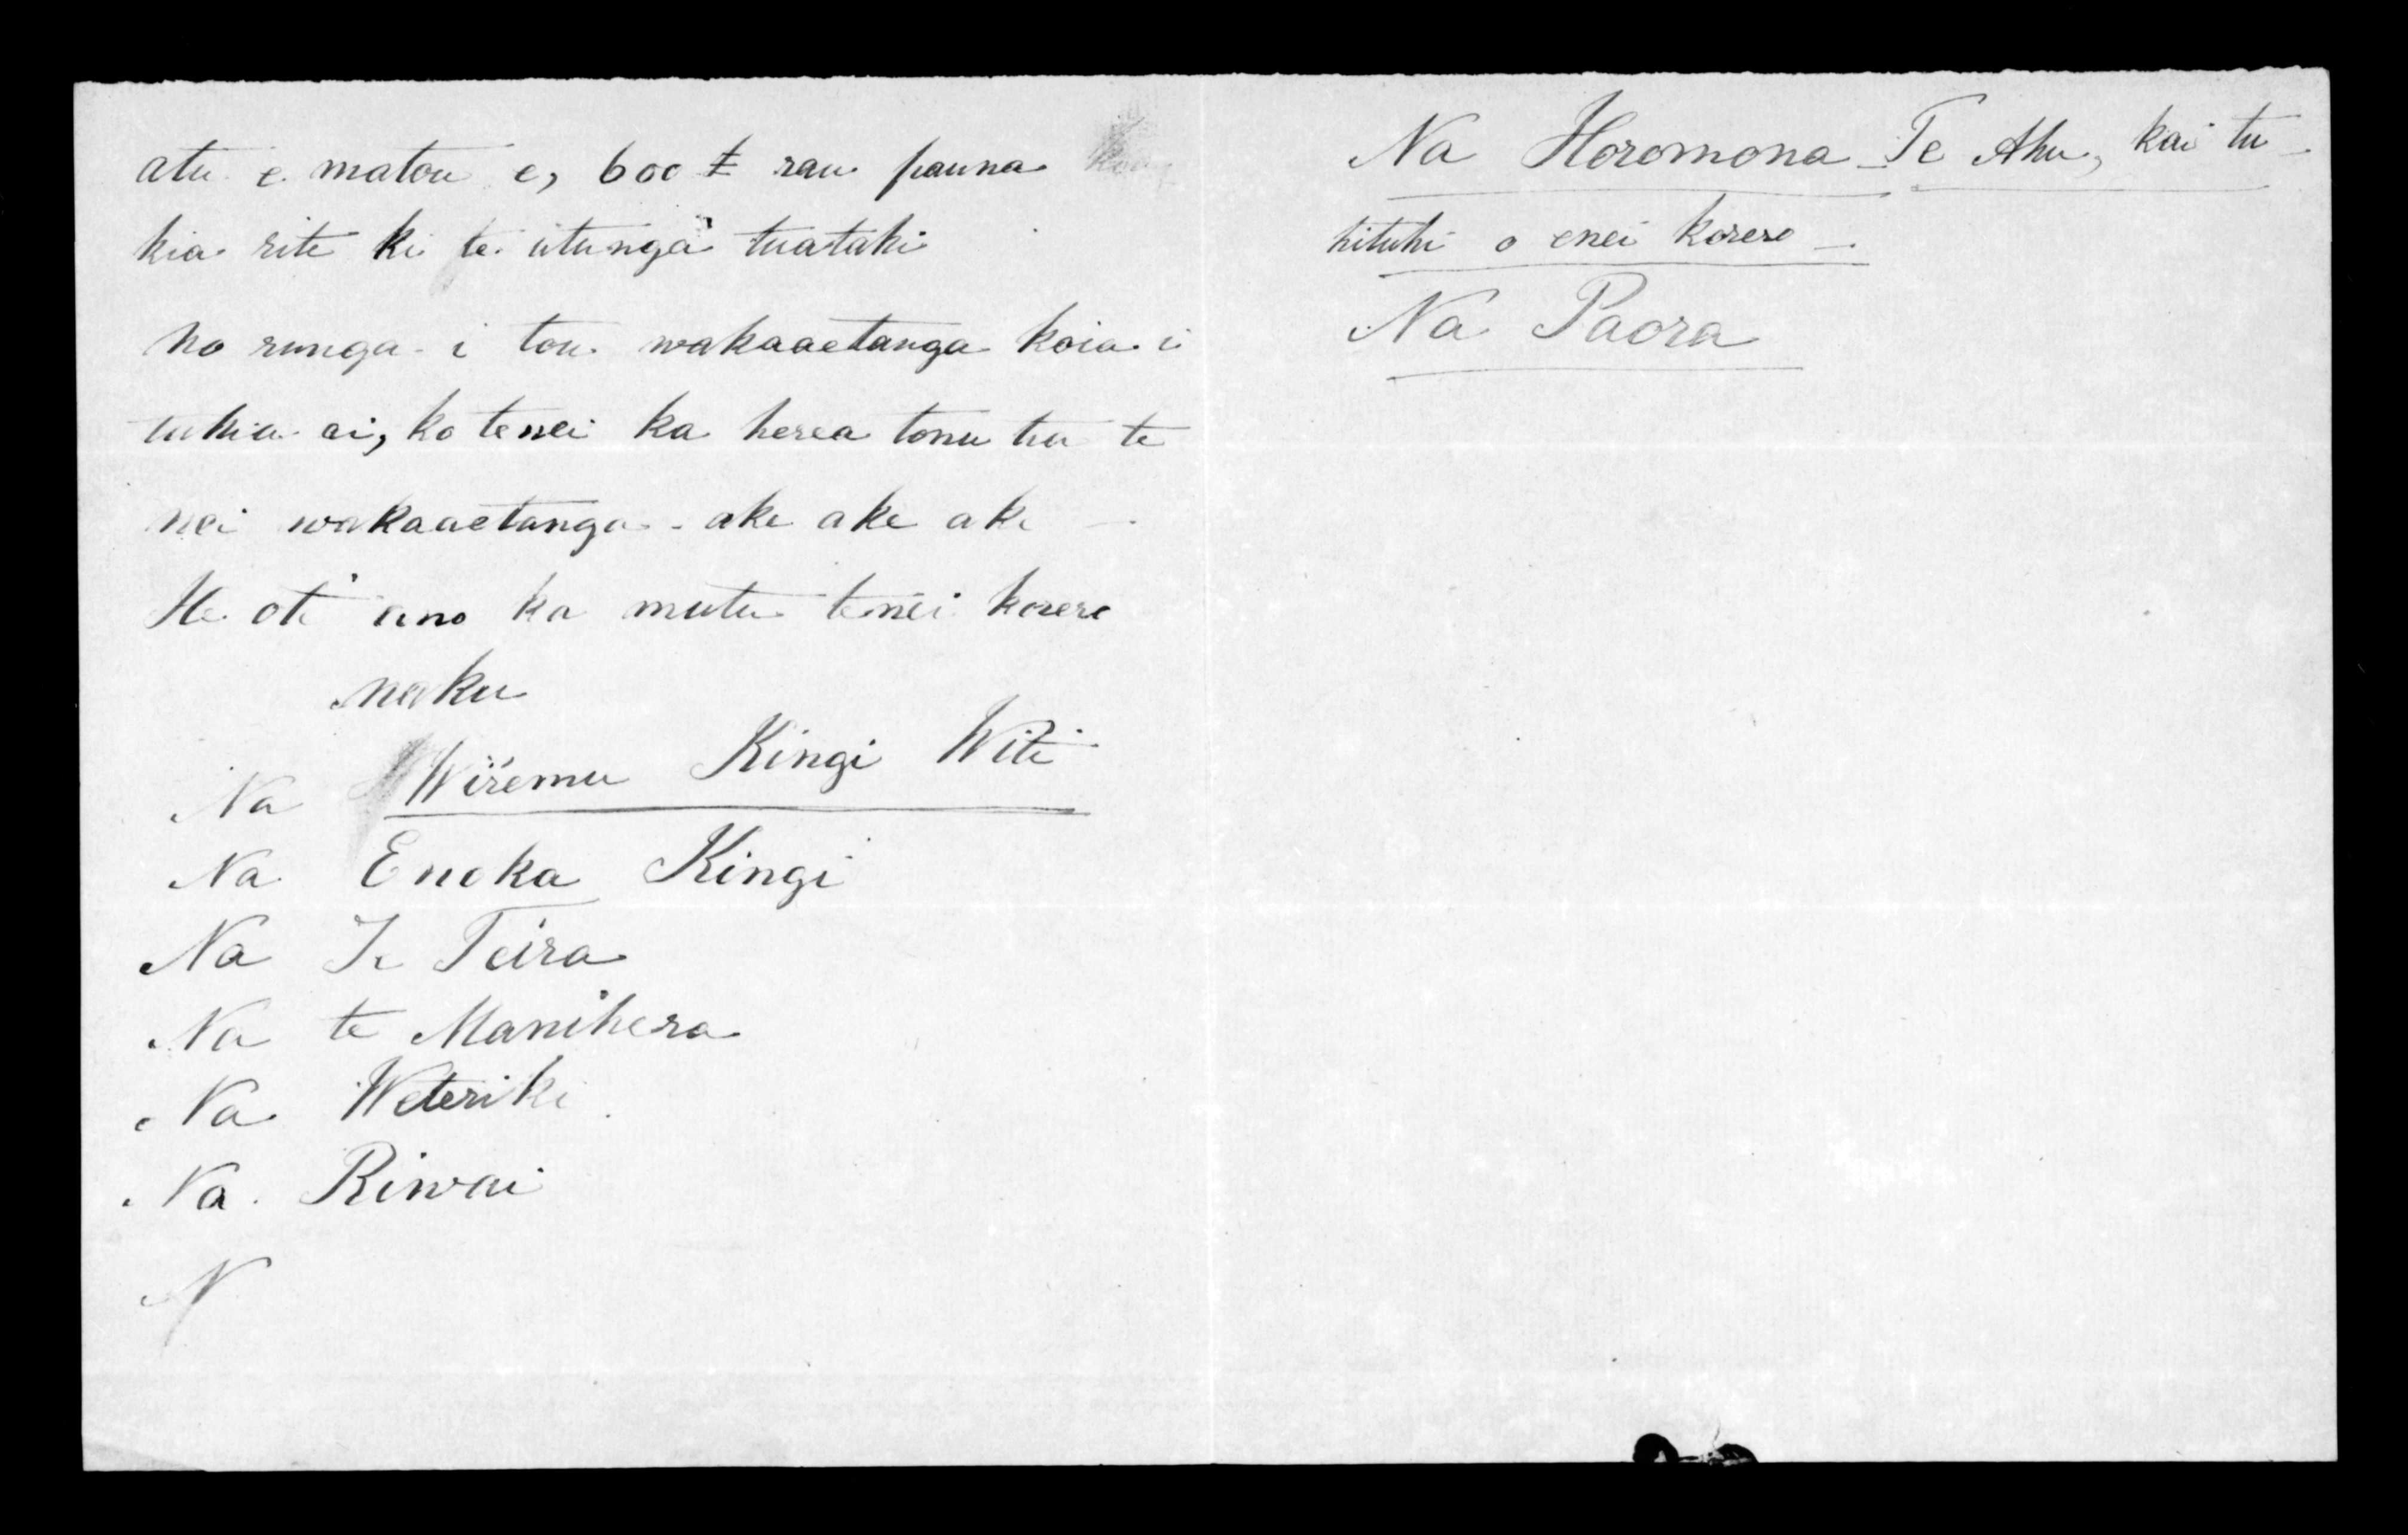 atu e matou e, 600 £ rau pauna
kia rite ki te utunga tuatahi
no runga i tou wakaaetanga koia i
tuhia ai, ko tenei ka herea tonu tia te
nei wakaaetanga - ake ake ake —
He oti ano ka mutu tenei korero
naku
Na Wiremu Kingi Witi
Na Enoka Kingi
Na Te Teira
Na te Manihera
Na Weteriki
Na Riwai
N
Na Horomona Te Ahu, kai tu
hituhi o enei korero —
Na Paora